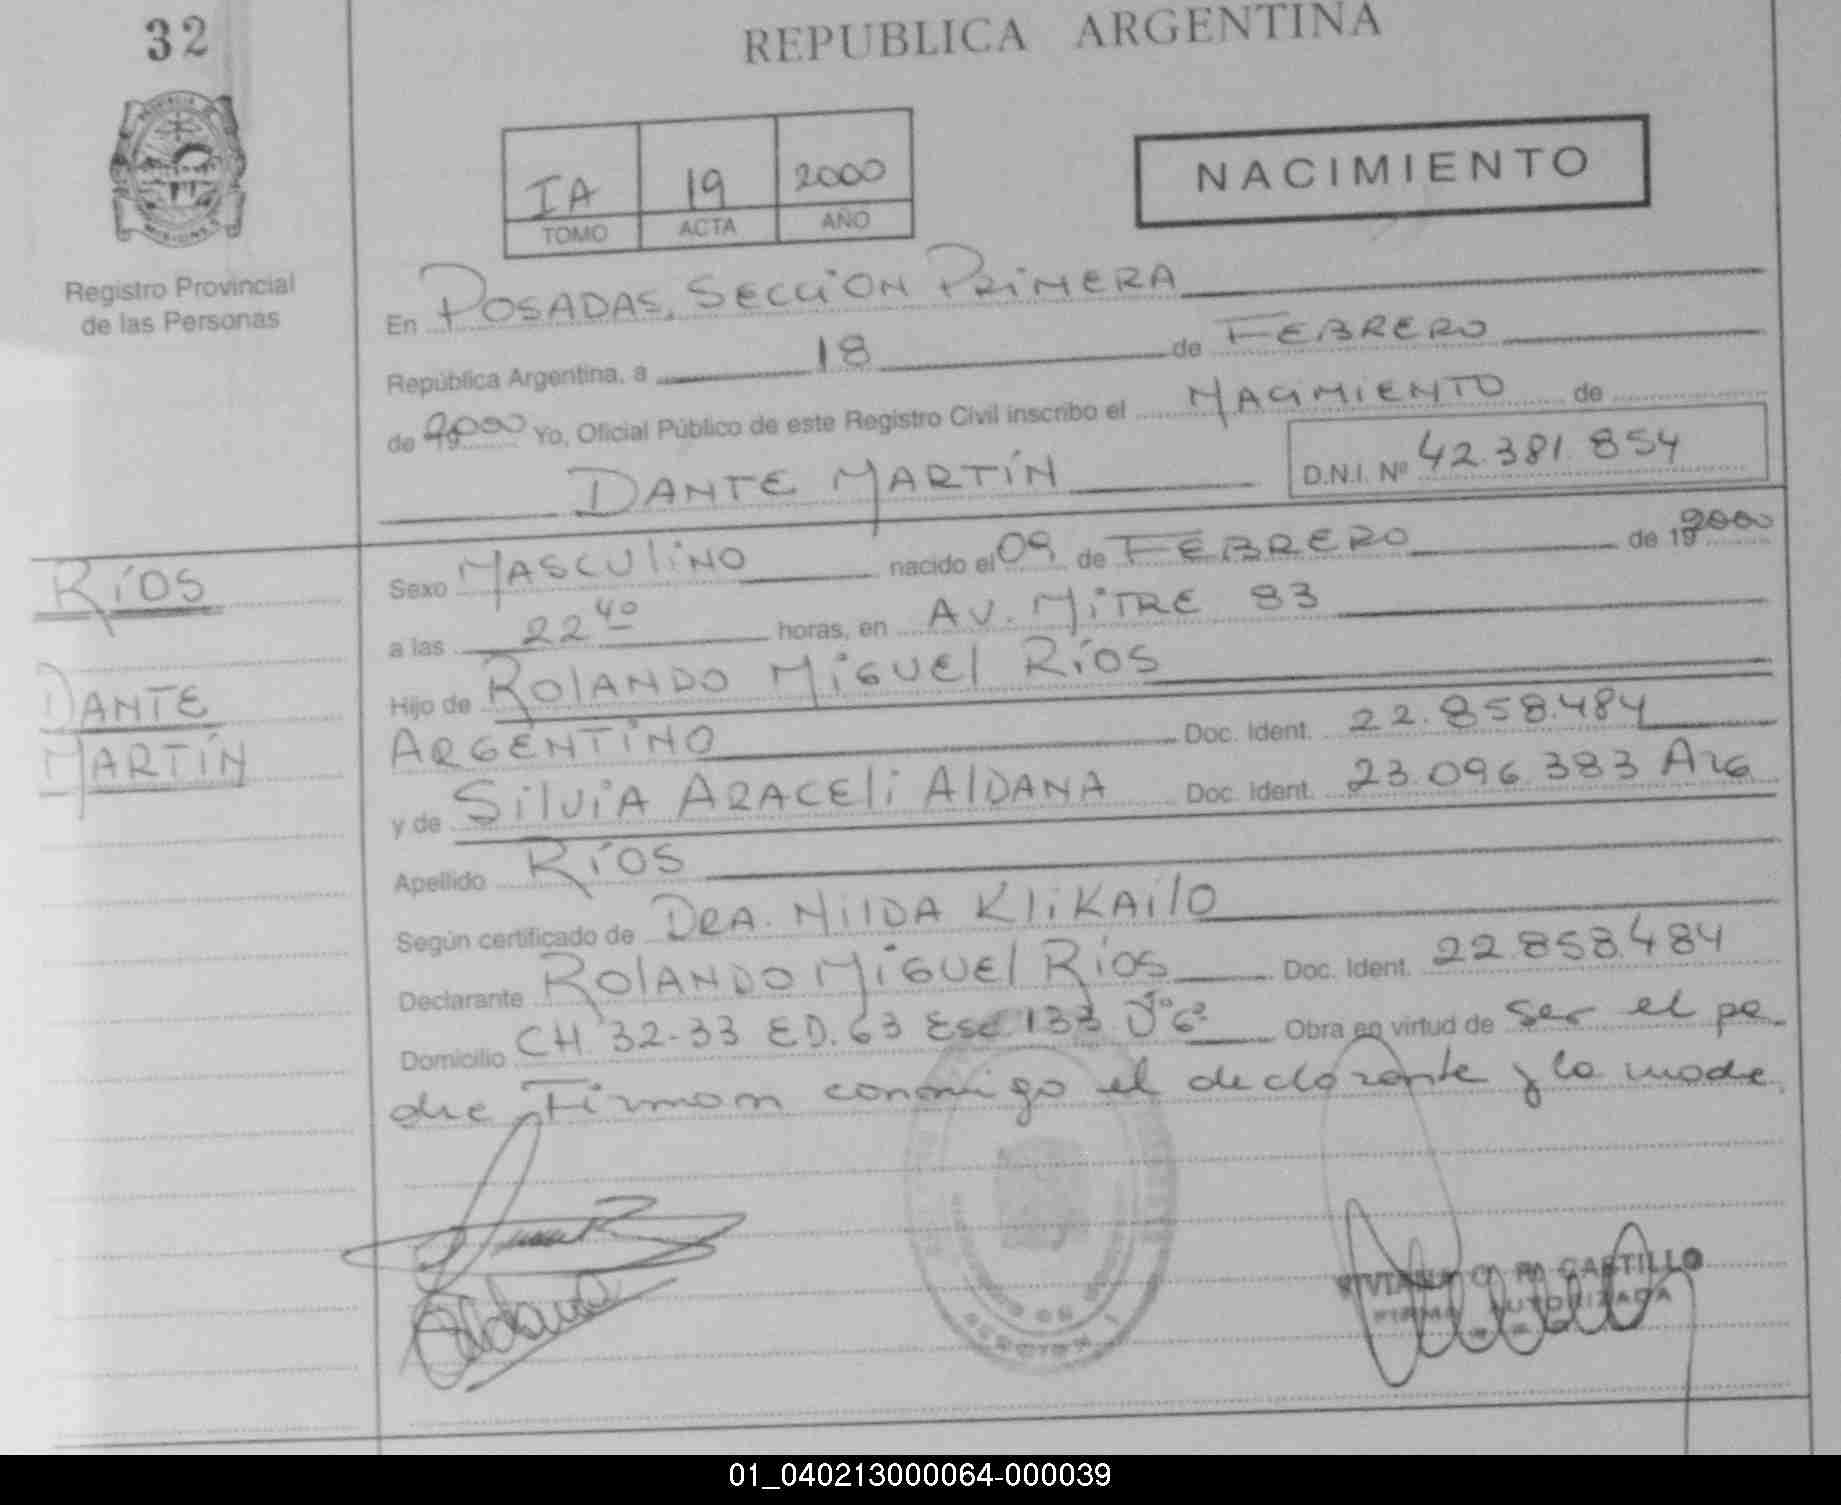 32
REPUBLICA ARGENTINA
PROVINCIA
MISIONES
Registro Provincial
de las Personas
IA 19 2000
TOMO ACTA AÑO
NACIMIENTO
En POSADAS, SECCIÓN PRIMERA
República Argentina, a 18 de FEBRERO
de 2000 Yo, Oficial Público de este Registro Civil inscribo el NACIMIENTO de
DANTE MARTÍN D.N.I. Nº 42.381.854
RÍOS
DANTE
MARTÍN
Sexo MASCULINO nacido el 09 de FEBRERO de 2000
a las 22 40 horas, en AV. MITRE 83
Hijo de ROLANDO MIGUEL RÍOS
ARGENTINO Doc. Ident. 22.858.484
y de SILVIA ARACELI ALDANA Doc. Ident. 23.096.383 ARG
Apellido RÍOS
Según certificado de DRA. NILDA KLIKAILO
Declarante ROLANDO MIGUEL RÍOS Doc. Ident. 22.858.484
Domicilio CH. 32-33 ED. 63 Esc 133 Obra en virtud de ser el pa-
dre Firman conmigo el declarante y la madre.
Aldana
CASTILLO
FIRMA AUTORIZADA
01_040213000064-000039